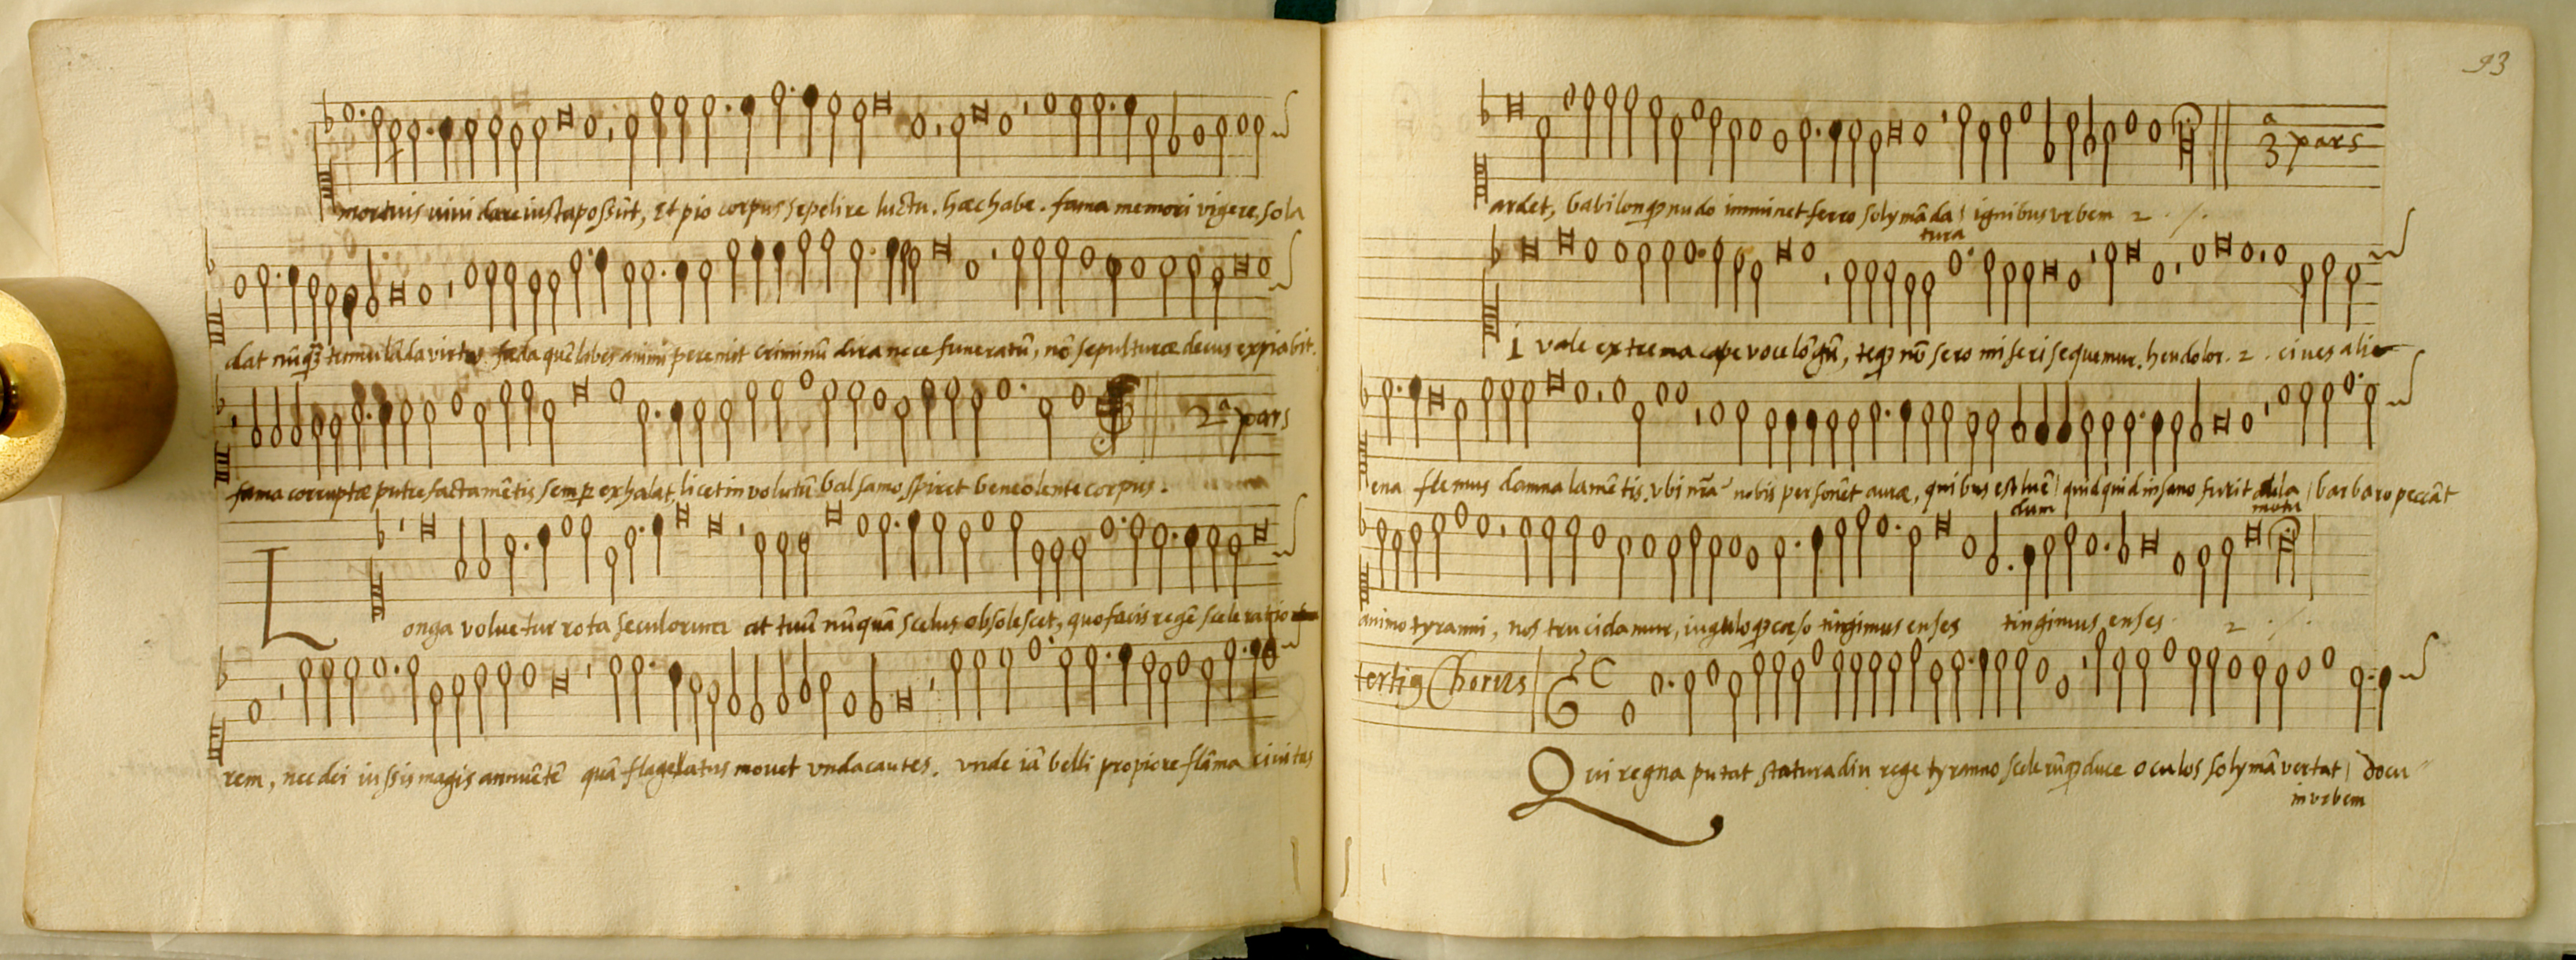 mortuis uiui dare iusta possūt, Et pio corpus sepelire luctu. hæc habe. fama memori vigere, sola
dat nūq̃ tumulāda virtus. fæda quē labes animi peremit criminū dira nece funeratū, nō sepulturæ decus expiabit.
2ª pars
fama corruptæ putrefacta mētis semp exhalat, licet inuolutū balsamo spiret beneolente corpus.
Longa voluetur rota seculorum at tuū nūquā scelus obsolescet, quo facis regē sceleratiorem
rem, nec dei iussis magis annuētē quā flagellatus mouet vnda cautes. vnde iā belli propiore flāma ciuitas
93
3ª pars
ardet, babilonq; nudo imminet ferro solymā da ignibus vrbem 2 ./.
tura
I vale extrema cape voce lōgū, teq; nō sero miseri sequemur. heu dolor. 2. ciues alie
ena flemus damna lamētis, vbi nr̃a nobis personēt auræ, quibus est luē quidquid insano furit aula barbaro peccāt
dum motu
animo tyranni, nos trucidamur, iuguloq; cæso tingimus enses tingimus enses 2 ./.
tertiq Chorus
Qui regna putat statura diu rege tyranno scelerūq; duce oculos solymā vertat docu
in vrbem